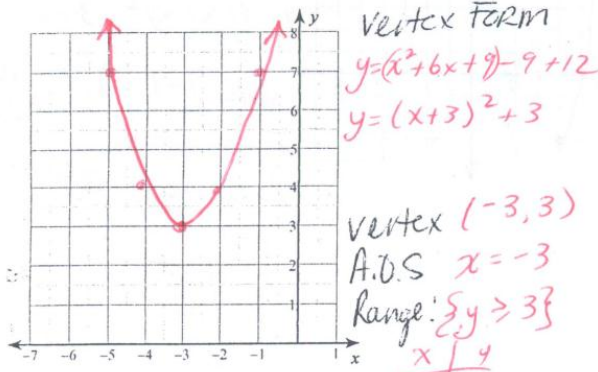 y
8
7
6
5
4
3
2
1
-7 -6 -5 -4 -3 -2 -1 1 x
vertex FORM
y=(x²+6x+9)-9+12
y=(x+3)²+3
vertex (-3,3)
A.O.S x=-3
Range: {y ≥ 3}
x | y